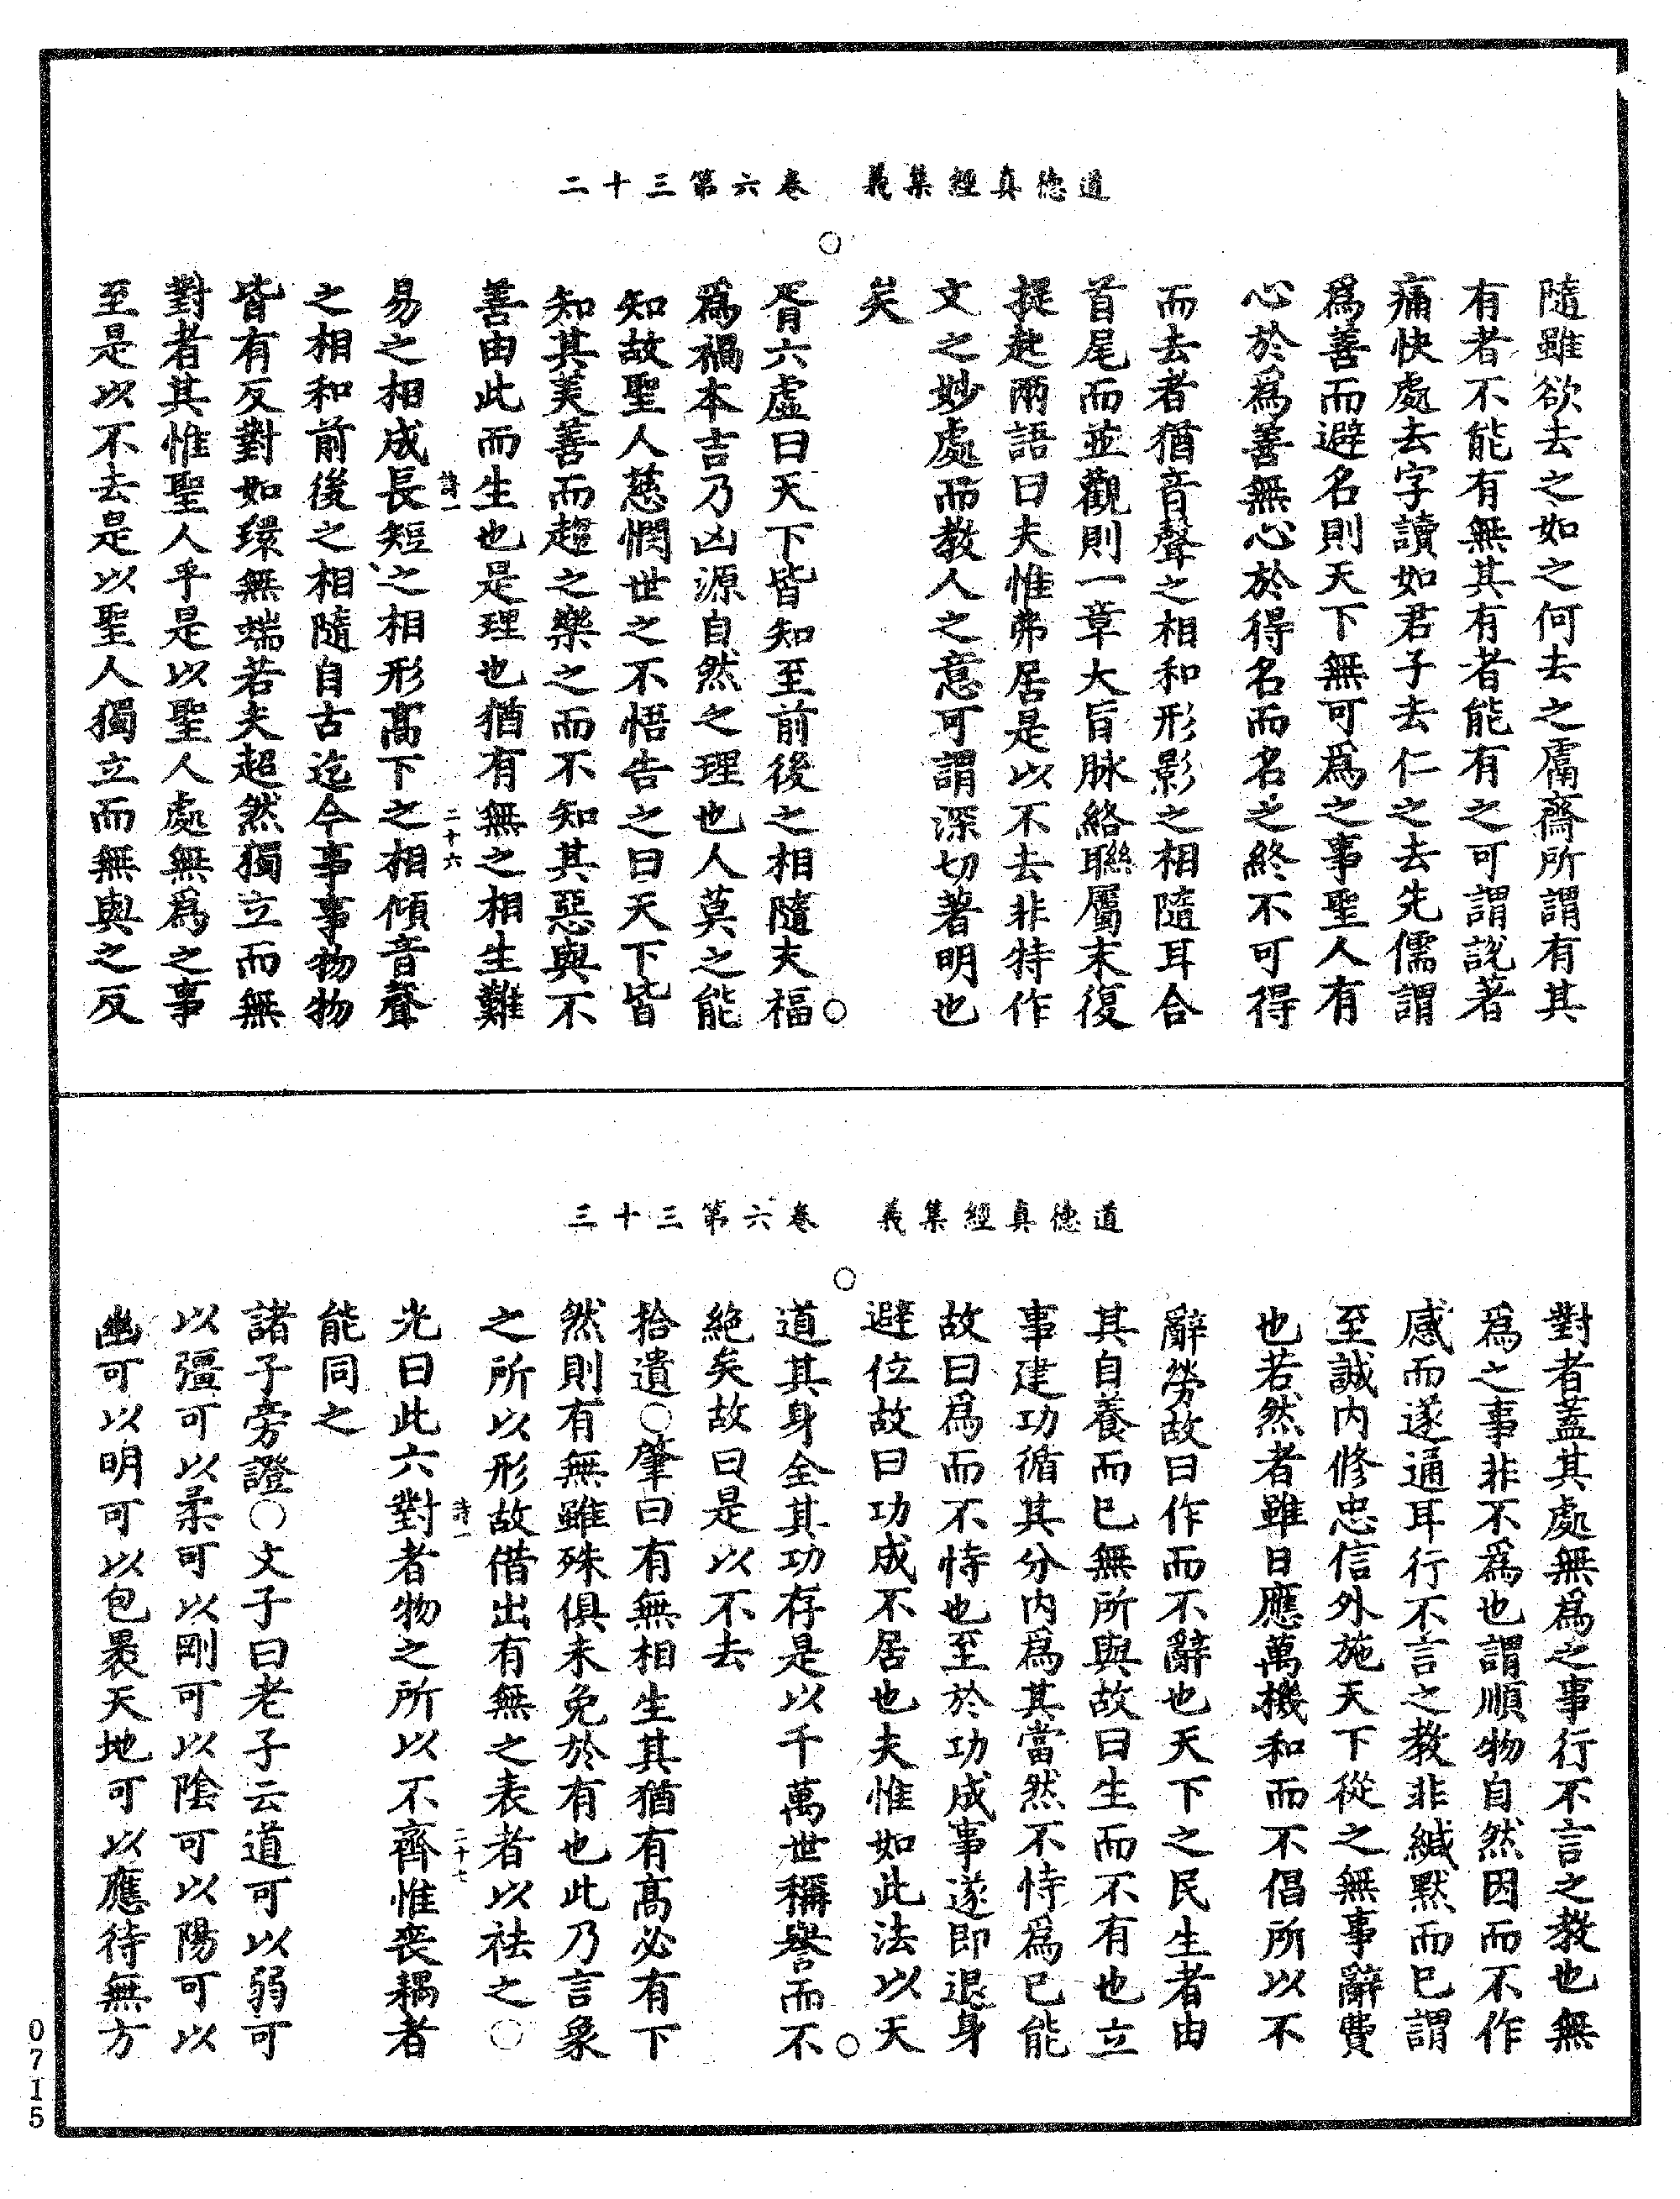 道德真經集義　卷六第三十二
隨雖欲去之如之何去之鬳齋所謂有其
有者不能有無其有者能有之可謂說著
痛快處去字讀如君子去仁之去先儒謂
爲善而避名則天下無可爲之事聖人有
心於爲善無心於得名而名之終不可得
而去者猶音聲之相和形影之相隨耳合
首尾而並觀則一章大旨脉絡聯屬末復
提起兩語曰夫惟弗居是以不去非特作
文之妙處而教人之意可謂深切著明也
矣
胥六虛曰天下皆知至前後之相隨夫福
爲禍本吉乃凶源自然之理也人莫之能
知故聖人慈憫世之不悟告之曰天下皆
知其美善而趨之樂之而不知其惡與不
善由此而生也是理也猶有無之相生難
詩一　二十六
易之相成長短之相形高下之相傾音聲
之相和前後之相隨自古迄今事事物物
皆有反對如環無端若夫超然獨立而無
對者其惟聖人乎是以聖人處無爲之事
至是以不去是以聖人獨立而無與之反
道德真經集義　卷六第三十三
對者蓋其處無爲之事行不言之教也無
爲之事非不爲也謂順物自然因而不作
感而遂通耳行不言之教非緘默而已謂
至誠内修忠信外施天下從之無事辭費
也若然者雖日應萬機和而不倡所以不
辭勞故曰作而不辭也天下之民生者由
其自養而已無所與故曰生而不有也立
事建功循其分内爲其當然不恃爲已能
故曰爲而不恃也至於功成事遂即退身
避位故曰功成不居也夫惟如此法以天
道其身全其功存是以千萬世稱譽而不
絕矣故曰是以不去
拾遺○肇曰有無相生其猶有高必有下
然則有無雖殊俱未免於有也此乃言象
之所以形故借出有無之表者以祛之○
詩一　二十七
光曰此六對者物之所以不齊惟喪耦者
能同之
諸子旁證○文子曰老子云道可以弱可
以彊可以柔可以剛可以陰可以陽可以
幽可以明可以包裹天地可以應待無方
0715